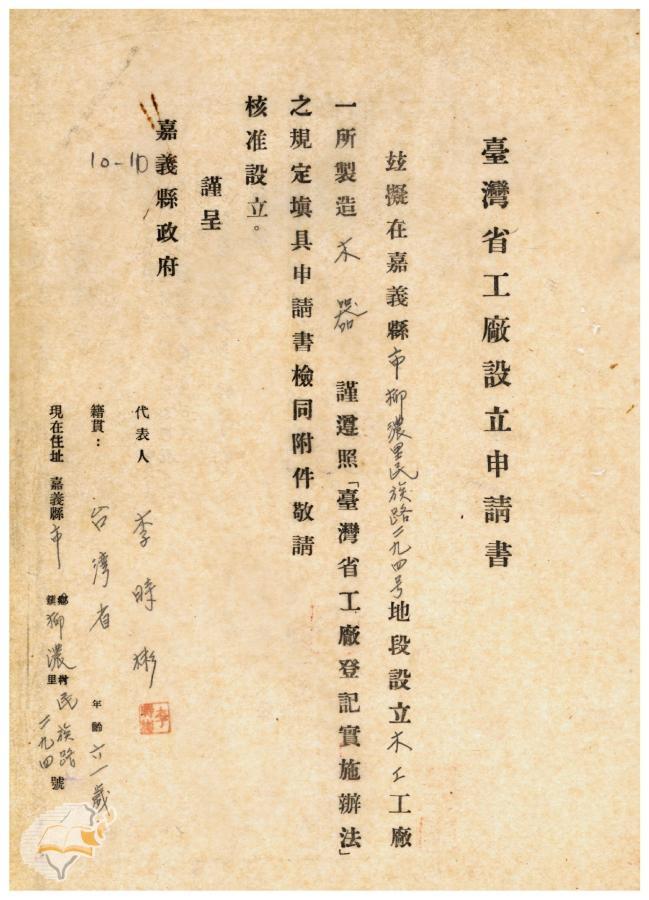 臺灣省工廠設立申請書
玆擬在嘉義縣市柳濃里民族路二九四号地段設立木工工廠
一所製造木器謹遵照「臺灣省工廠登記實施辦法」
之規定填具申請書檢同附件敬請
核准設立。
謹呈
嘉義縣政府
10-10
代表人 李時彬
籍貫： 台湾省 年齡 六一歲
現在住址 嘉義縣市 鄉鎮 柳濃 村里 民族路二九四 號